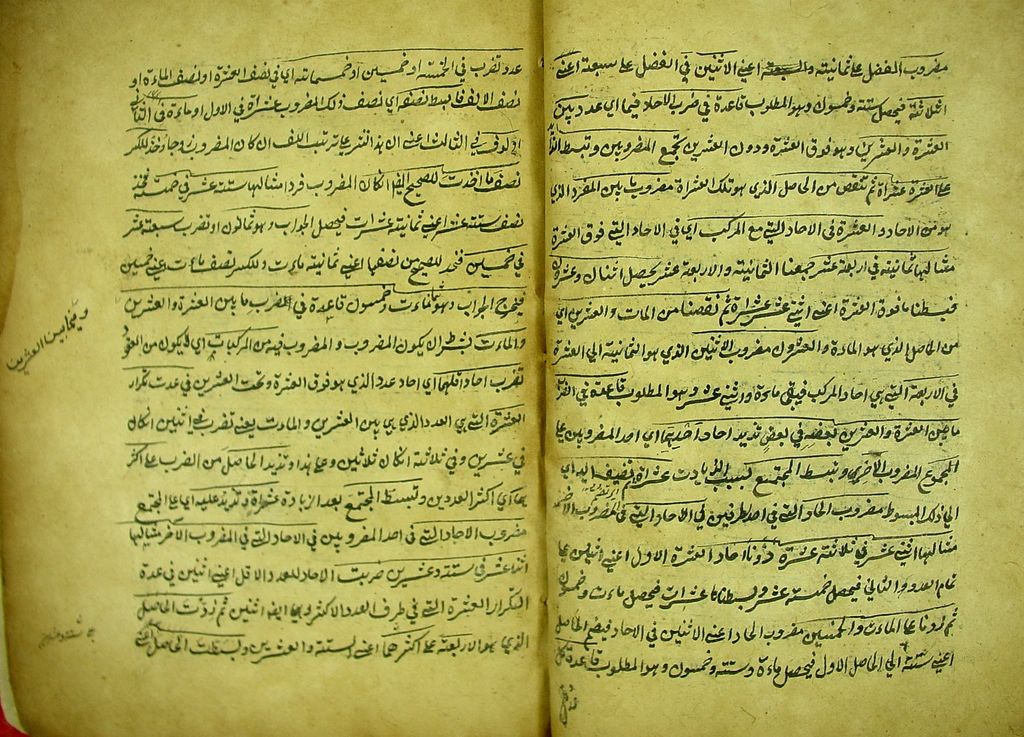 مضروب المفضل على ثمانيته والسبعة اعني الاثنين في الفضل على سبعة اعني
الثلاثة فيحصل ستة وخمسون وهو المطلوب قاعدة في ضرب الاحاد فيما اي عدد بين
العشرة والعشرين وهو فوق العشرة ودون العشرين تجمع المضروبين وتبسط
على العشرة عشراة ثم تنقص من الحاصل الذي هو تلك العشراة مضروب ما بين المفرد الذي
هو من الاحاد و العشرة في الاحاد التي مع المركب اي في الاحاد التي فوق العشرة
مثالها ثمانيته في اربعة عشر جمعنا الثمانيته والاربعة عشر يحصل اثنان وعشرون
فبسطنا ما فوق العشرة اعني اثني عشر عشراة ثم نقصنا من المات والعشرين اي
من الحاصل الذي هو الماءة والعشرون مضروب الاثنين الذي هو من الثمانية الي العشرة
في الاربعة التي هي احاد المركب فيبقى ماءة واثني عشر وهو المطلوب قاعدة في الضرب
ما بين العشرة والعشرين بعضه في بعض تزيد احاد احدهما اي احد المضروبين على
المجموع المضروب الاخر وتبسط المجتمع عشراة ثم تضيف اليه اي
الي ذلك المبسوط مضروب الاحاد التي في احد الطرفين في الاحاد التي في المضروب الاخر
مثالها اثني عشر في ثلاثة عشرة زدنا احاد العشرة الاول اعني اثنين على
تمام العدد والثاني فيحصل خمسة عشر وبسطناها عشرات فيحصل ماءت وخمسون
ثم زدنا على الماءت والخمسين مضروب الاحاد اعني الاثنين في الاحاد فيضم الحاصل
اعني ستة الي الحاصل الاول فيحصل ماءة وستة وخمسون وهو المطلوب قاعدة كل
عدد تضرب في الخمسة او خمسين او خمسمائة اي في نصف العشرة او نصف الماءة او
نصف الالف فابسط نصفه اي نصف ذلك المضروب عشراة في الاول او ماءة في الثاني
او الوف في الثالث اعلم ان هذا النشر على ترتيب اللف ان كان المضروب زوجا وخذ للكسر
نصف ما اخذت للصحيح ان كان المضروب فردا مثالها ستة عشر في خمسة فخذ
نصف ستة عشر اعني ثمانية عشرات فيحصل الجواب وهو ثمانون او تضرب سبعة عشر
في خمسين فتخذ للصحيح من نصفها اعني ثمانية ماءت وللكسر نصف ماءت اعني خمسين
فيخرج الجواب وهو ثماماءت وخمسون قاعدة في الضرب ما بين العشرة والعشرين
والماءت بشرط ان يكون المضروب والمضروب فيه من المركبات اي لا يكون من العقود
تضرب احاد اقلهما اي احاد عدد الذي هو فوق العشرة وتحت العشرين في عدت تكرار
العشرة التي هي العدد الذي بين العشرين والمادت يعني تضرب في اثنين ان كان
في عشرين وفي ثلاثة ان كان ثلاثين وعلى هذا وتزيد الحاصل من الضرب على اكثر
هما اي اكثر العددين وتبسط المجتمع بعد الزيادة عشراة وتزيد عليه اي على المجتمع
مضروب الاحاد التي في احد المضروبين في الاحاد التي في المضروب الاخر مثالها
اثنا عشر في ستة وعشرين ضربت الاحاد للعدد الاقل اعني اثنين في عدة
التكرار العشرة التي في طرف العدد الاكثر وهي ايضا اثنين ثم زدت الحاصل
الذي هو الاربعة على اكثرهما اعني ستة والعشرين وبسطت الحاصل اعني
وفيما بين العشرين